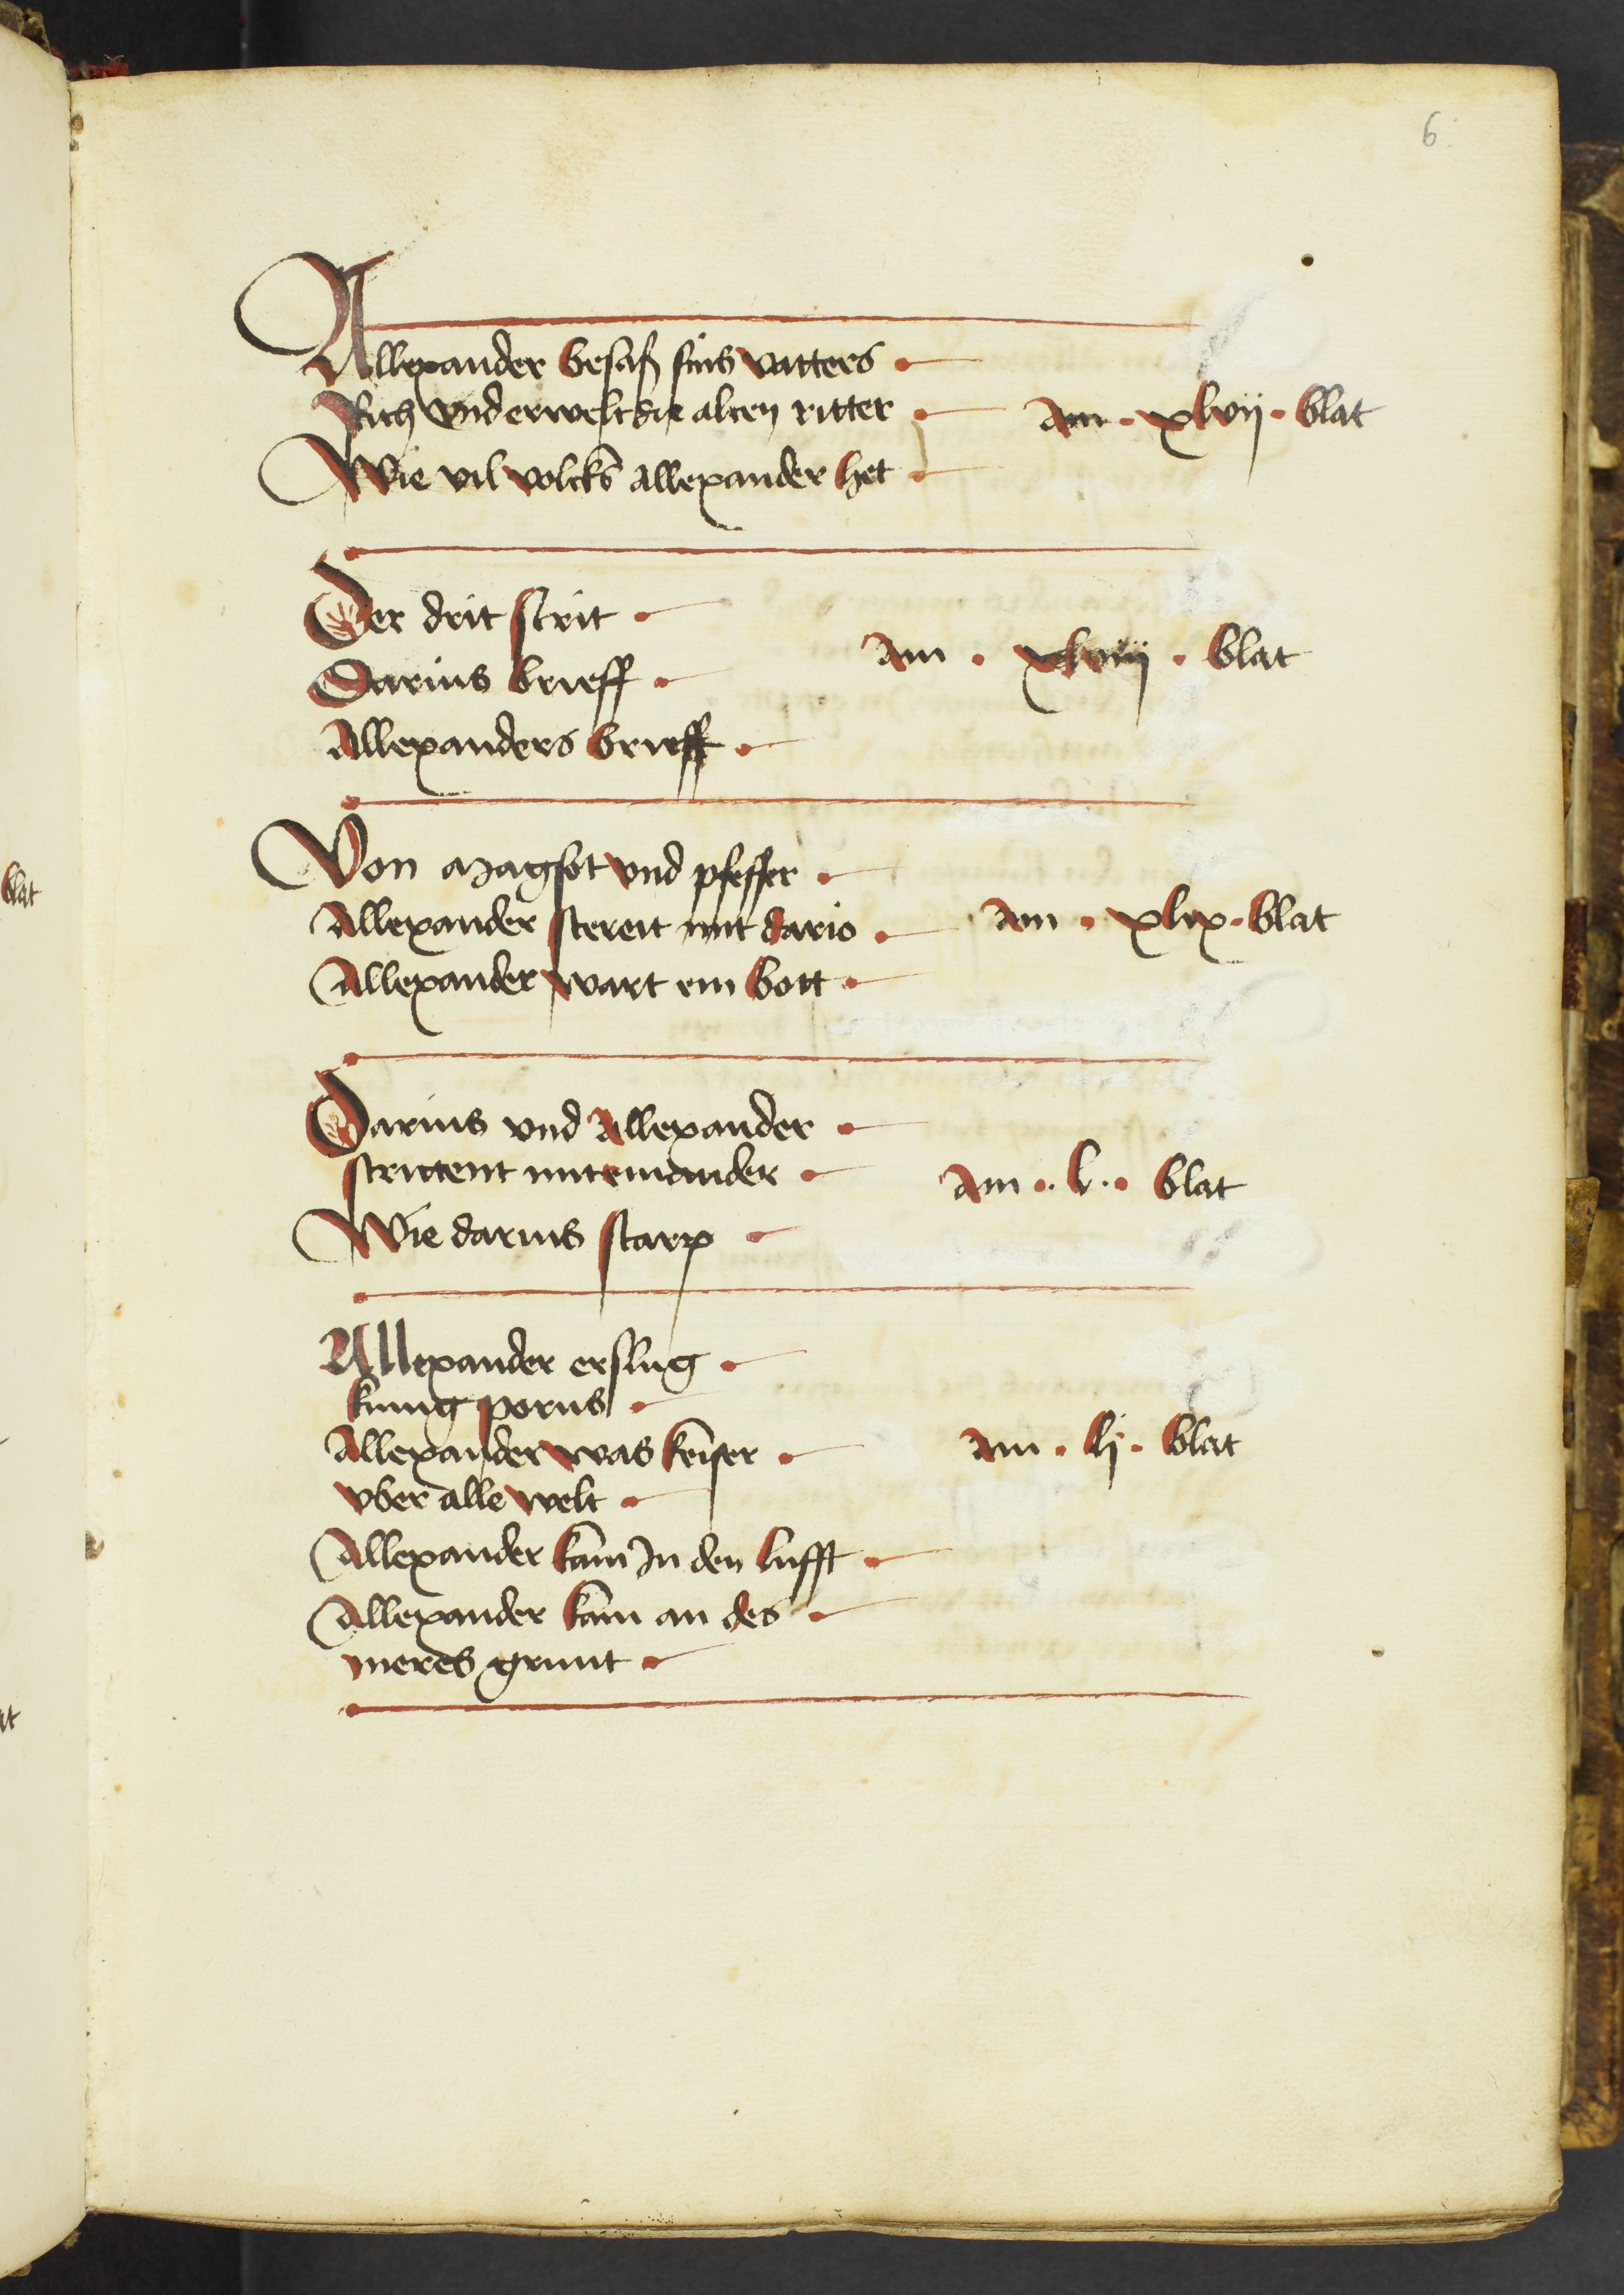 6
Allexander besaß sins vatters
Rich vnd erwelt die alten ritter
am · xlvij · blat
Wie vil volcks allexander het
Der drit strit
Darius brieff
am · xlviij · blat
Allexanders brieff
Von magsot vnd pfeffer
Allexander streit mit dario
am · xlix · blat
Allexander wart ein bott
Darius vnd Allexander
strittent miteinander
am · l · blat
Wie darius starp
Allexander erslug
kunig porus
Allexander was keiser
am · lj · blat
vber alle welt
Allexander kam In den lufft
Allexander kam an des
meres grunt
blat